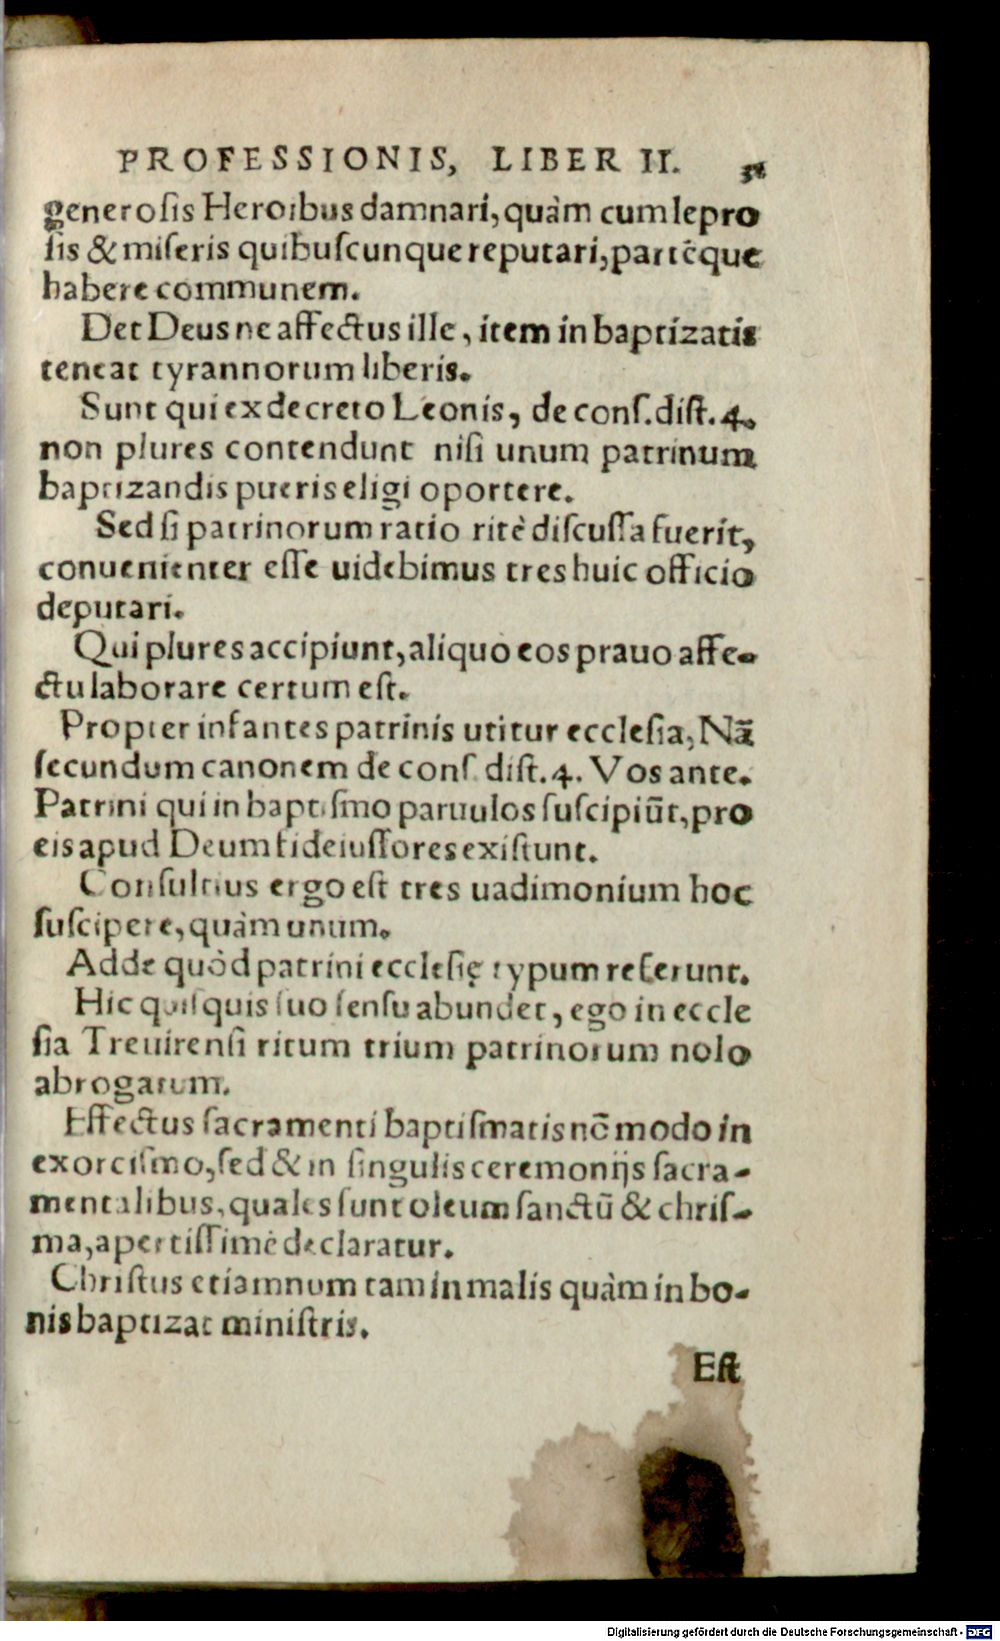 PROFESSIONIS, LIBER II.
generosis Heroibus damnari, quàm cum lepro
sis & miseris quibuscunque reputari, partēque
habere communem.
Det Deus ne affectus ille, item in baptizatis
teneat tyrannorum liberis.
Sunt qui ex decreto Leonis, de cons. dist. 4.
non plures contendunt nisi unum patrinum
baptizandis pueris eligi oportere.
Sed si patrinorum ratio ritè discussa fuerit,
conuenienter esse uidebimus tres huic officio
deputari.
Qui plures accipiunt, aliquo eos prauo affe-
ctu laborare certum est.
Propter infantes patrinis utitur ecclesia, Nā
secundum canonem de cons. dist. 4. Vos ante.
Patrini qui in baptismo paruulos suscipiūt, pro
eis apud Deum fideiussores existunt.
Consultius ergo est tres uadimonium hoc
suscipere, quàm unum.
Adde quòd patrini ecclesię typum referunt.
Hic quisquis suo sensu abundet, ego in eccle
sia Treuirensi ritum trium patrinorum nolo
abrogatum.
Effectus sacramenti baptismatis nō modo in
exorcismo, sed & in singulis ceremonijs sacra-
mentalibus, quales sunt oleum sanctū & chris-
ma, apertissimè declaratur.
Christus etiamnum tam in malis quàm in bo-
nis baptizat ministris.
Est
Digitalisierung gefördert durch die Deutsche Forschungsgemeinschaft - DFG